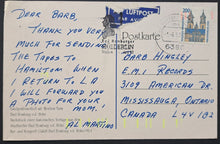 LUFTPOST
PAR AVION
200
Postkarte
DEAR BARB,
THANK YOU VERY
MUCH FOR SENDING
THE TAPES TO
HAMILTON WHEN
RETURN TO LA
I WILL FORWARD YOU
A PHOTO FOR YOUR
MOM,
AL MARTINO
BARB HINGLEY
E.M.I RECORDS
3109 AMERICAN DR.
MISSISSAUGA, ONTARIO
CANADA L4V 1B2